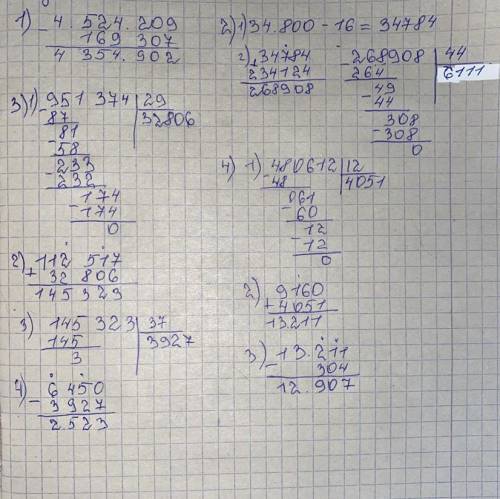 1) - 4.524.209
169 307
4 354.902
2) 1) 34.800 - 16 = 34784
2) + 34784
234124
268908
- 268908 | 44
264 | 6111
- 49
44
308
- 308
0
3) 1) - 951 374 | 29
87 | 32806
- 81
58
- 233
232
- 174
174
0
2) + 112 517
32 806
145 323
3) 145 323 | 37
145 | 3927
3
4) - 6 450
3 927
2 523
4) 1) - 480612 | 12
48 | 4051
061
- 60
12
- 12
0
2) 9160
+ 4051
13211
3) - 13.211
304
12.907